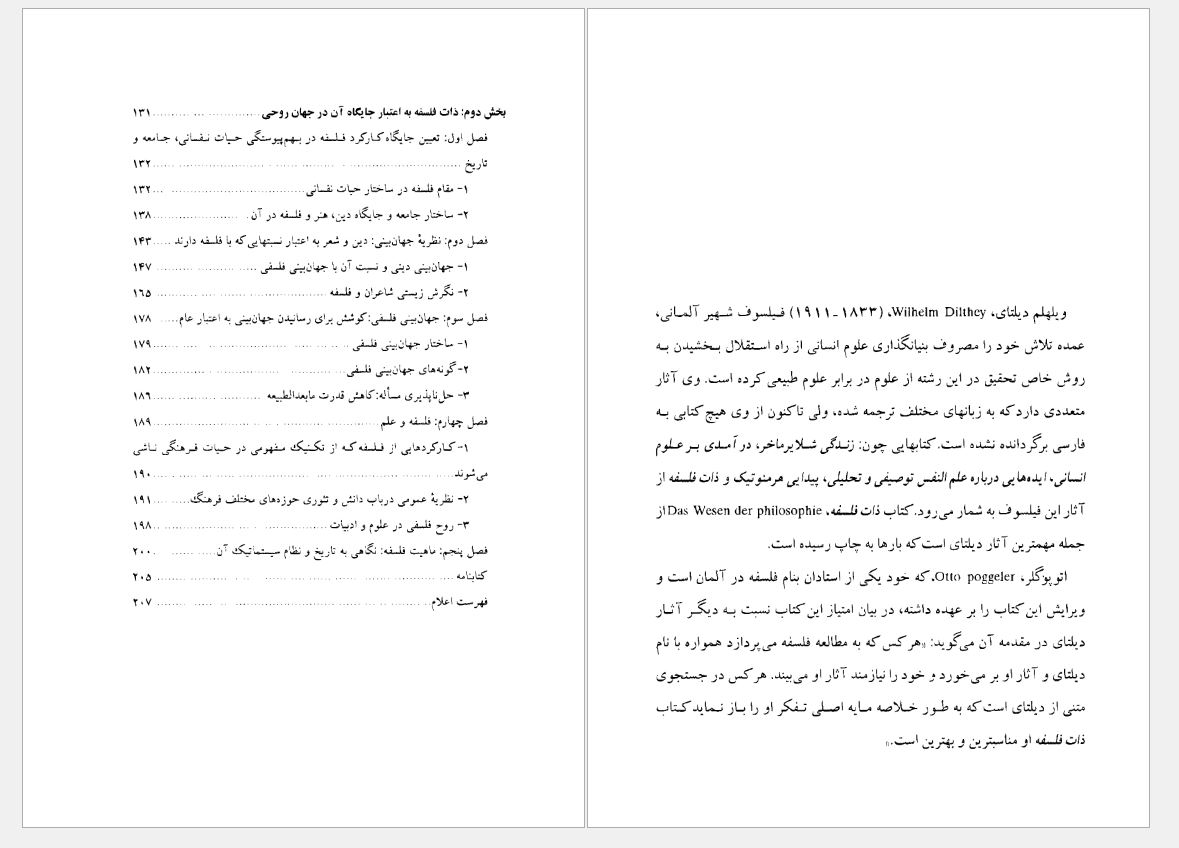 ویلهلم دیلتای، Wilhelm Dilthey، (۱۸۳۳-۱۹۱۱) فیلسوف شهیر آلمانی،
عمده تلاش خود را مصروف بنیانگذاری علوم انسانی از راه استقلال بخشیدن به
روش خاص تحقیق در این رشته از علوم در برابر علوم طبیعی کرده است. وی آثار
متعددی دارد که به زبانهای مختلف ترجمه شده، ولی تاکنون از وی هیچ کتابی به
فارسی برگردانده نشده است. کتابهایی چون: زندگی شلایرماخر، در آمدی بر علوم
انسانی، ایده‌هایی درباره علم النفس توصیفی و تحلیلی، پیدایی هرمنوتیک و ذات فلسفه از
آثار این فیلسوف به شمار می‌رود. کتاب ذات فلسفه، Das Wesen der philosophie از
جمله مهمترین آثار دیلتای است که بارها به چاپ رسیده است.
اتو پوگلر، Otto poggeler، که خود یکی از استادان بنام فلسفه در آلمان است و
ویرایش این کتاب را بر عهده داشته، در بیان امتیاز این کتاب نسبت به دیگر آثار
دیلتای در مقدمه آن می‌گوید: «هر کس که به مطالعه فلسفه می‌پردازد همواره با نام
دیلتای و آثار او بر می‌خورد و خود را نیازمند آثار او می‌بیند. هر کس در جستجوی
متنی از دیلتای است که به طور خلاصه مایه اصلی تفکر او را باز نماید کتاب
ذات فلسفه او مناسبترین و بهترین است.»
بخش دوم: ذات فلسفه به اعتبار جایگاه آن در جهان روحی ........ ۱۳۱
فصل اول: تعیین جایگاه کارکرد فلسفه در بهم‌پیوستگی حیات نفسانی، جامعه و
تاریخ ........ ۱۳۲
۱- مقام فلسفه در ساختار حیات نفسانی ........ ۱۳۲
۲- ساختار جامعه و جایگاه دین، هنر و فلسفه در آن ........ ۱۳۸
فصل دوم: نظریهٔ جهان‌بینی: دین و شعر به اعتبار نسبتهایی که با فلسفه دارند ..... ۱۴۳
۱- جهان‌بینی دینی و نسبت آن با جهان‌بینی فلسفی ........ ۱۴۷
۲- نگرش زیستی شاعران و فلسفه ........ ۱۶۵
فصل سوم: جهان‌بینی فلسفی: کوشش برای رسانیدن جهان‌بینی به اعتبار عام ..... ۱۷۸
۱- ساختار جهان‌بینی فلسفی ........ ۱۷۹
۲- گونه‌های جهان‌بینی فلسفی ........ ۱۸۲
۳- حل‌ناپذیری مسأله: کاهش قدرت مابعدالطبیعه ........ ۱۸۶
فصل چهارم: فلسفه و علم ........ ۱۸۹
۱- کارکردهایی از فلسفه که از تکنیک مفهومی در حیات فرهنگی ناشی
می‌شوند ........ ۱۹۰
۲- نظریهٔ عمومی درباب دانش و تئوری حوزه‌های مختلف فرهنگ ........ ۱۹۱
۳- روح فلسفی در علوم و ادبیات ........ ۱۹۸
فصل پنجم: ماهیت فلسفه: نگاهی به تاریخ و نظام سیستماتیک آن ........ ۲۰۰
کتابنامه ........ ۲۰۵
فهرست اعلام ........ ۲۰۷